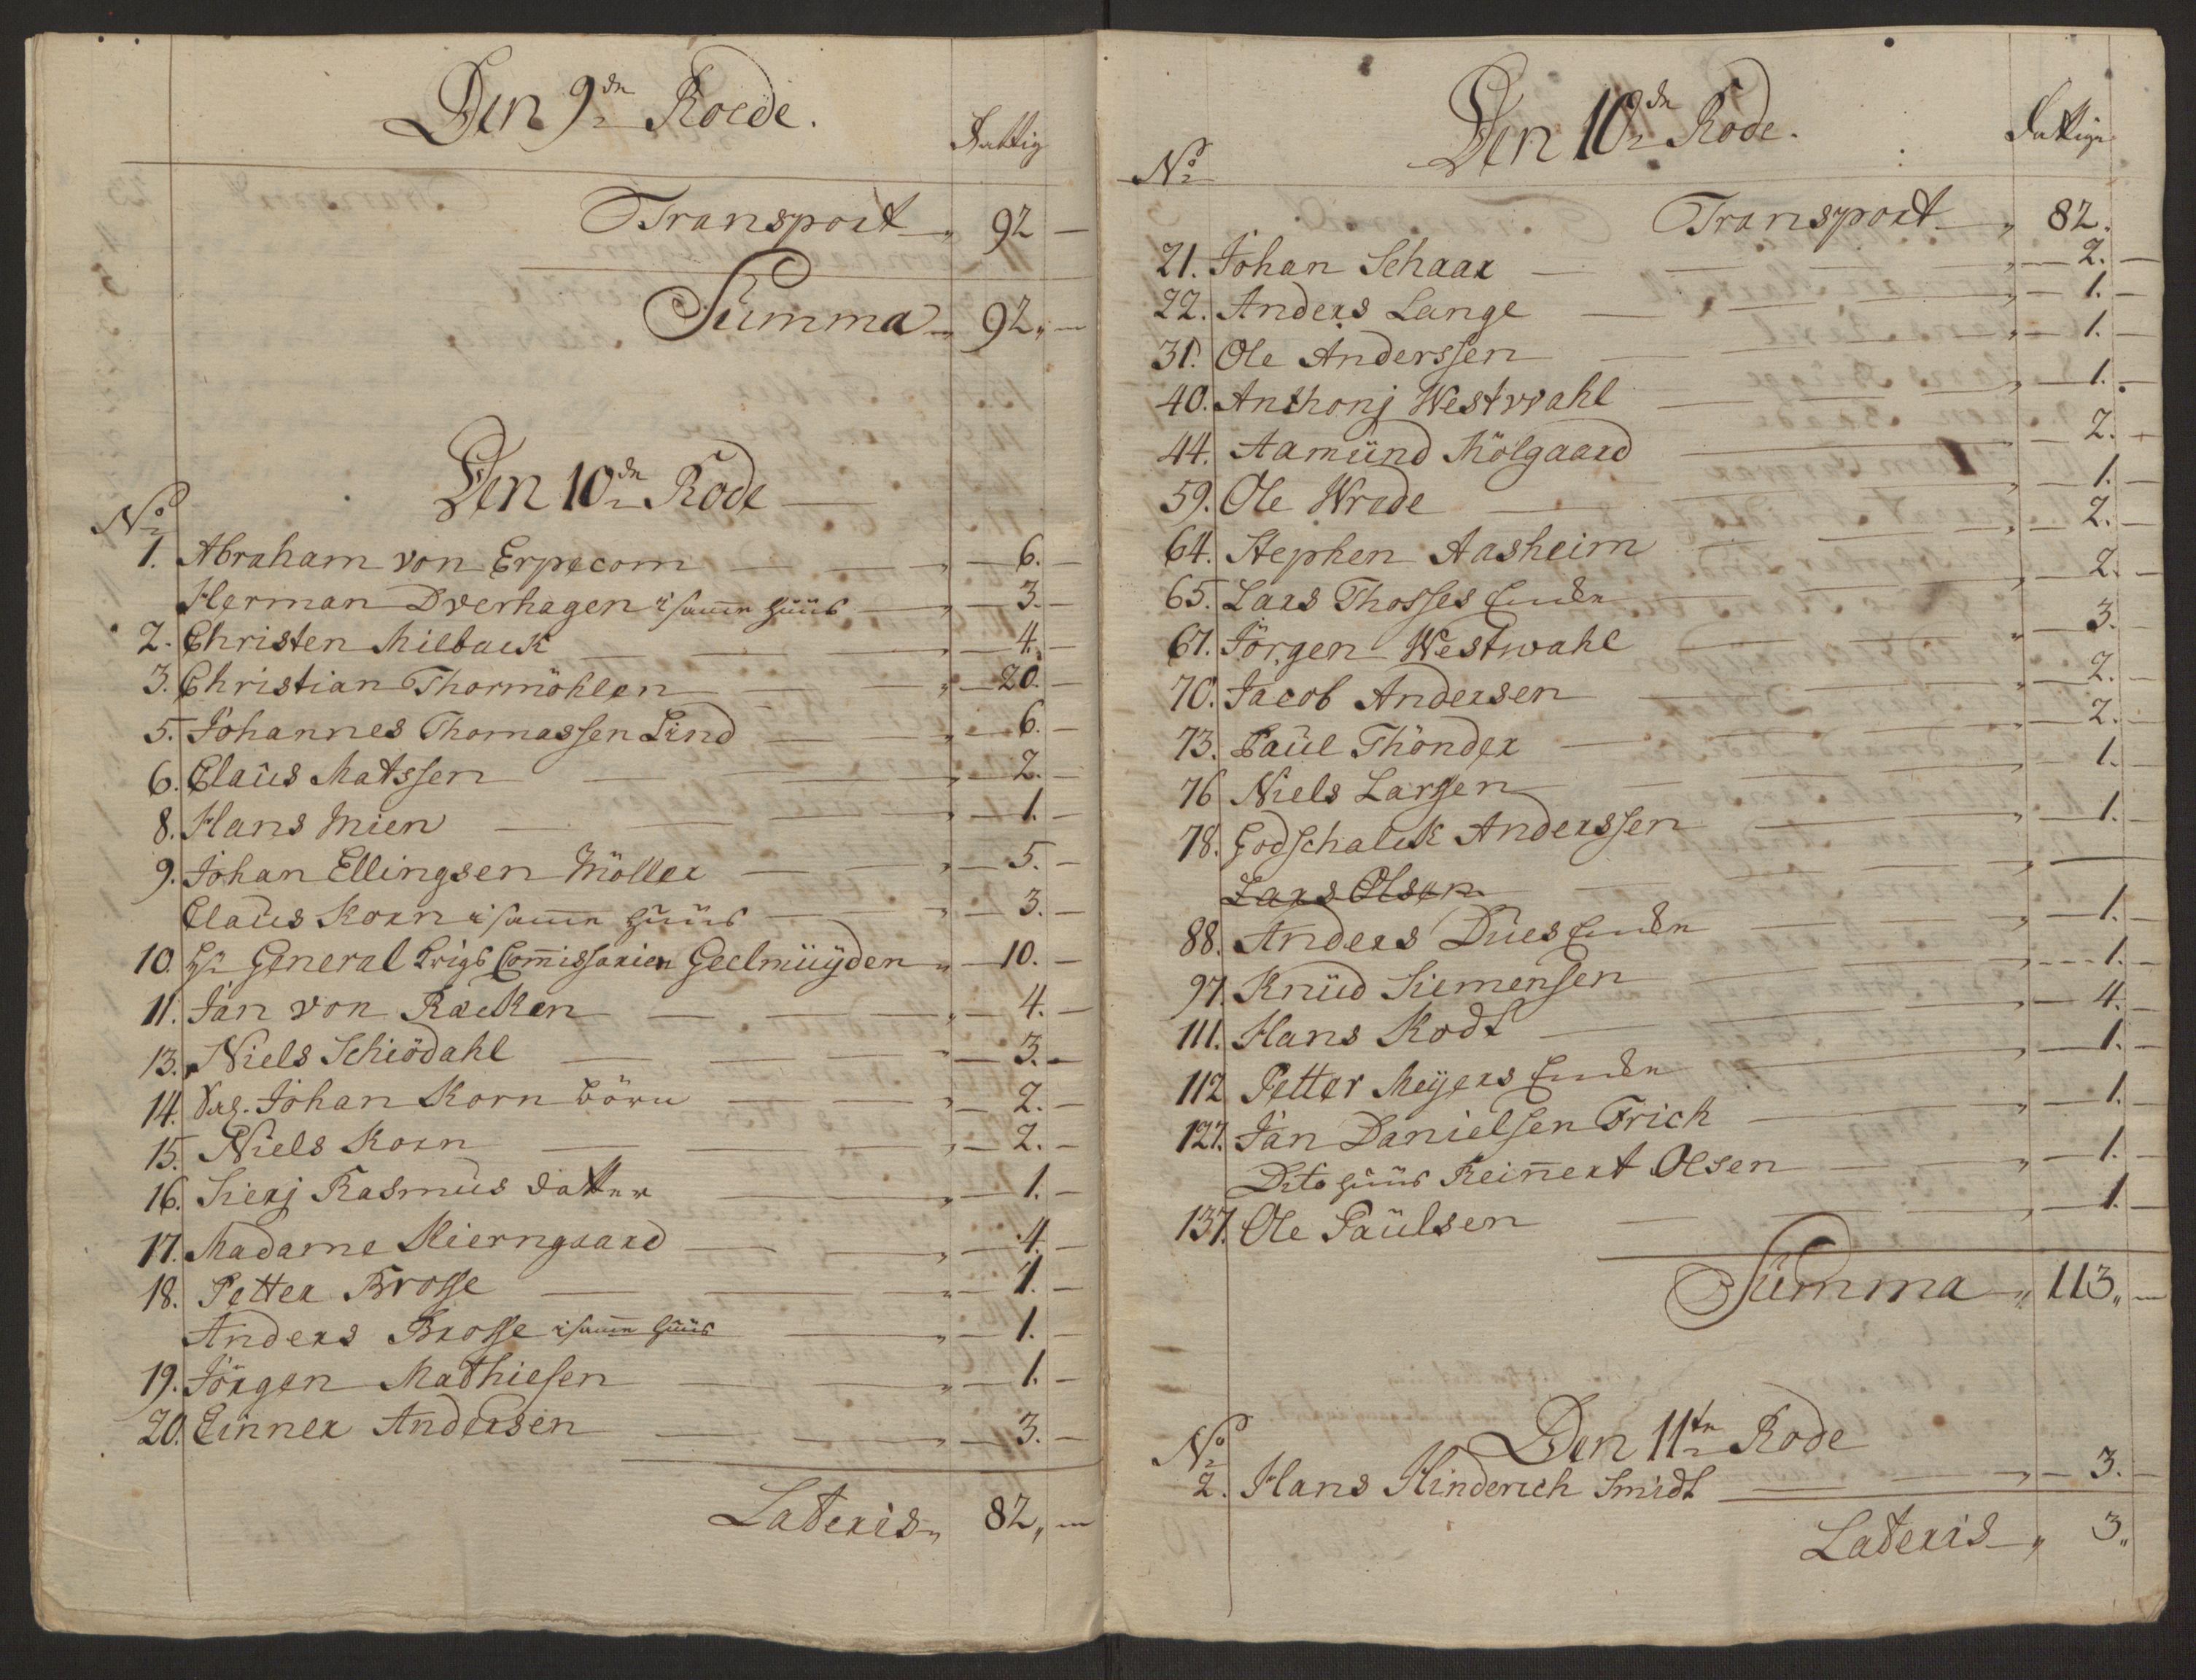 Den 9de Roede.
Fattig
Transport 92
Summa 92
Den 10de Rode
No
1. Abraham von Erpecom 6.
Herman Dverhagen i samme Huus 3.
2. Christen Milback 4.
3. Christian Thormöhlen 20.
5. Johannes Thomassen Lind 6.
6. Claüs Matssen 2.
8. Hans Mien 1.
9. Johan Ellingsen Möller 5.
Claüs Korn i samme Huus 3.
10. Hr General Krigs Commissarien Geelmüÿden 10.
11. Jan von Racken 4.
13. Niels Schiödahl 3.
14. Sal. Johan Korn börn 2.
15. Niels Korn 2.
16. Sierj Rasmüs datter 1.
17. Madame Kierngaard 4.
18. Petter Brosse 1.
Anders Brosse i samme Huus 1.
19. Jörgen Mathiesen 1.
20. Einner Andersen 3.
Lateris 82
Den 10de Rode.
Fattige
No
Transport 82.
21. Johan Schaar 2.
22. Anders Lange 1.
31. Ole Anderssen 1.
40. Anthonj Westwahl 1.
44. Aamünd Mölgaard 2.
59. Ole Wrade 1.
64. Stephen Aasheim 2.
65. Lars Thosses Encke 2.
67. Jörgen Westwahl 3.
70. Jacob Andersen 2.
73. Paül Thönder 2.
76 Niels Larssen 1.
78. Godschalck Anderssen 1.
Lars Olsen
88. Anders Dües Encke 1.
97. Knüd Siemensen 1.
111. Hans Kodt 4.
112 Petter Meÿers Encke 1.
127. Jan Danielsen Frich 1.
Dito Huus Reinert Olsen 1.
137. Ole Paülsen 1.
Summa 113
Den 11te Rode
No
2. Hans Hinderich Smidt 3.
Lateris 3